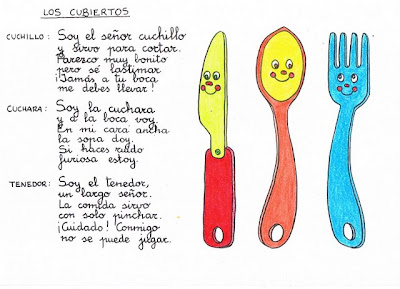 LOS CUBIERTOS
CUCHILLO: Soy el señor cuchillo
y sirvo para cortar.
Parezco muy bonito
pero sé lastimar
¡Jamás a tu boca
me debes llevar!
CUCHARA: Soy la cuchara
y a la boca voy.
En mi cara ancha
la sopa doy.
Si haces ruido
furiosa estoy.
TENEDOR: Soy el tenedor,
un largo señor.
La comida sirvo
con solo pinchar.
¡Cuidado! Conmigo
no se puede jugar.